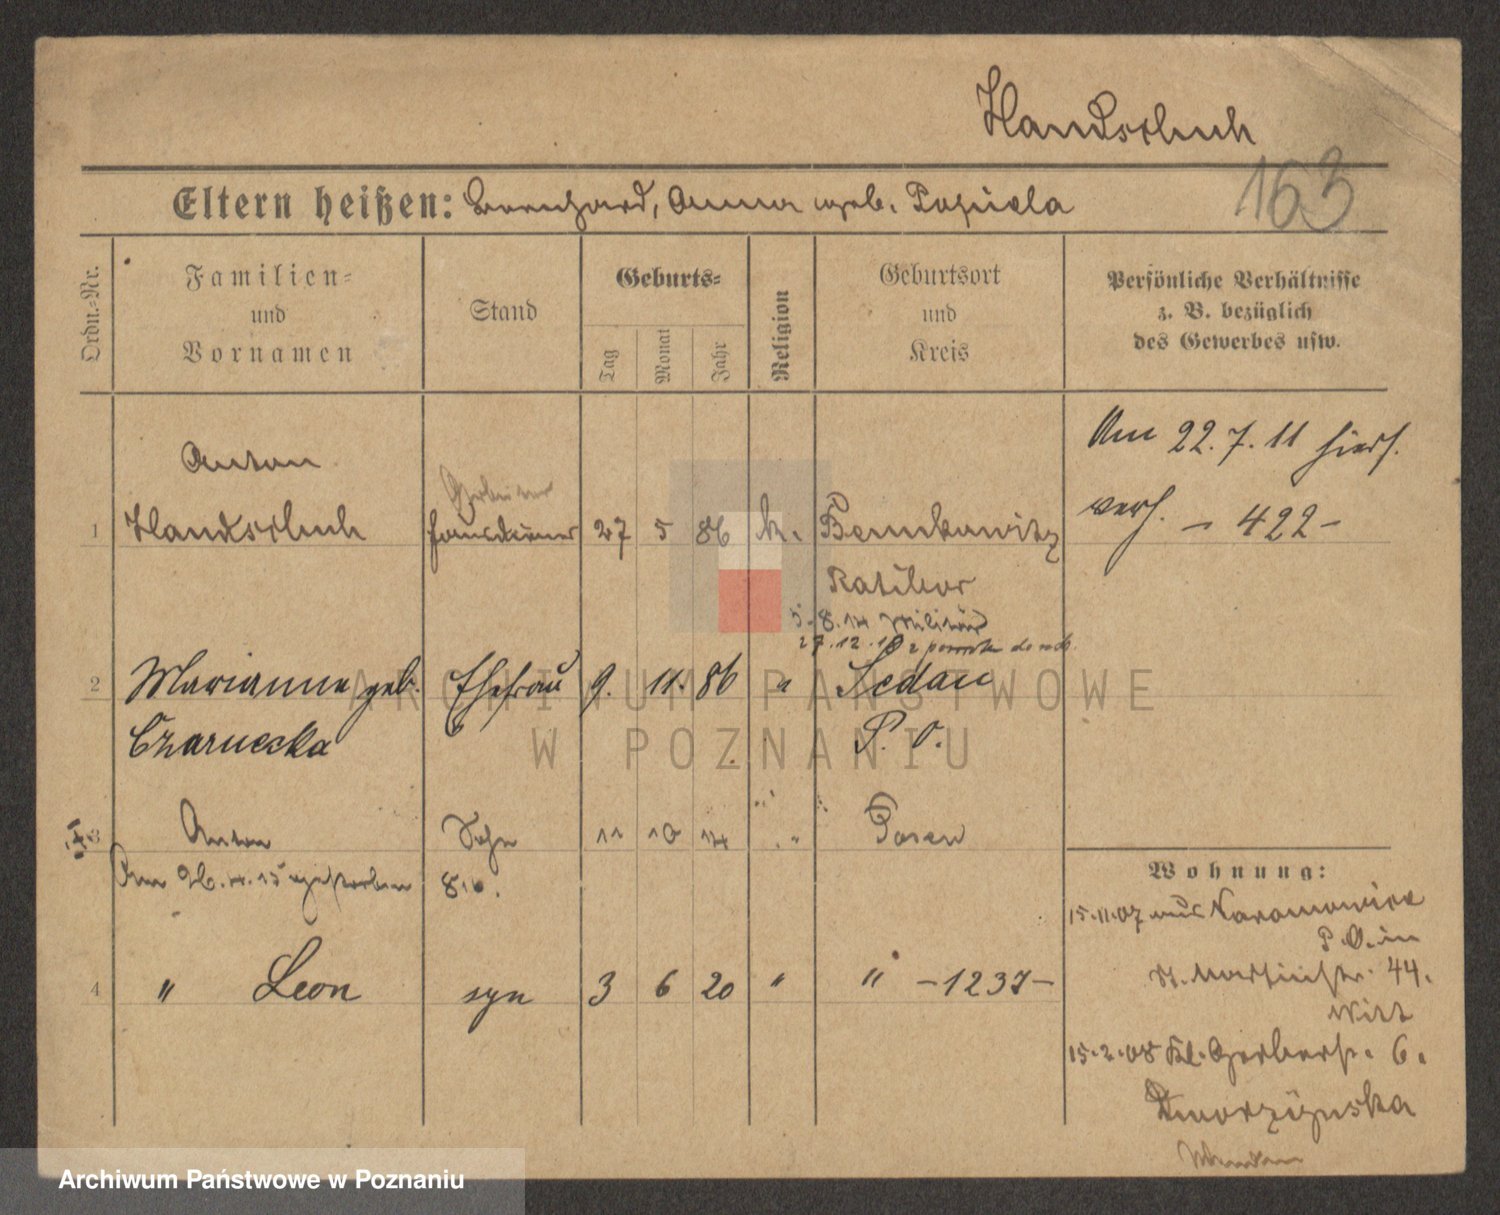 Handschuh
163
Eltern heißen: Bernhard, Anna geb. Popiela
Ordn.-Nr.
Familien-
und
Vornamen
Stand
Geburts-
Tag
Monat
Jahr
Religion
Geburtsort
und
Kreis
Persönliche Verhältnisse
z. B. bezüglich
des Gewerbes usw.
Anton
Arbeiter
1 Handschuh Hausdiener 27 5 86 k. Benkowitz
Ratibor
Am 22.7.11 hier
verh. - 422 -
5.8.14 Militär
27.12.18 z powrotem do
2 Marianne geb. Ehefrau 9. 11. 86 " Sedan
Czarnecka P. O.
3 Anton Sohn 11 10 14 " Posen
Am 26.4.15 gestorben
4 " Leon syn 3 6 20 " " -1237-
Wohnung:
15.11.07 aus
P. O. in
St. Martinstr. 44.
Witt
15.2.08 Kl. Gerberstr. 6.
Dworzynska
Wenden
ARCHIWUM PAŃSTWOWE
W POZNANIU
Archiwum Państwowe w Poznaniu